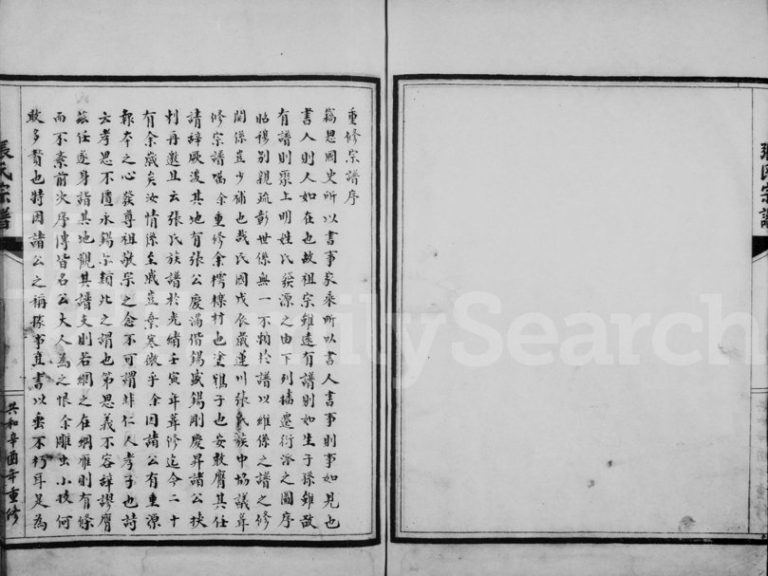 重修宗譜序
竊思國史所以書事家乘所以書人書事則事如見也
書人則人如在也故祖宗雖遠有譜則如生子孫雖散
有譜則聚上明姓氏發源之由下列播遷衍派之圖序
昭穆別親疏彰世係無一不賴於譜以維係之譜之修
關係豈少補也哉民國戊辰歲蓮川張氏族中協議葺
修宗譜囑余重修余樗櫟材也塗鴉子也安敢膺其任
請辭厥後其地有張公慶滿偕錫盛錫剛慶昇諸公扶
刺再邀且云張氏族譜於光緒壬寅年葺修迄今二十
有余歲矣汝情係至戚豈棄寒微乎余因諸公有重源
報本之心發尊祖敬宗之念不可謂非仁人孝子也詩
云孝思不匱永錫尔類此之謂也第思義不容辭謬膺
茲任遂身詣其地觀其譜文則若網之在綱雁則有條
而不紊前次序傳皆名公大人為之恨余雕蟲小技何
敢多贅也特因諸公之稱揚事直書以垂不朽耳是為
張氏宗譜
共和辛酉年重修
張氏宗譜
FamilySearch